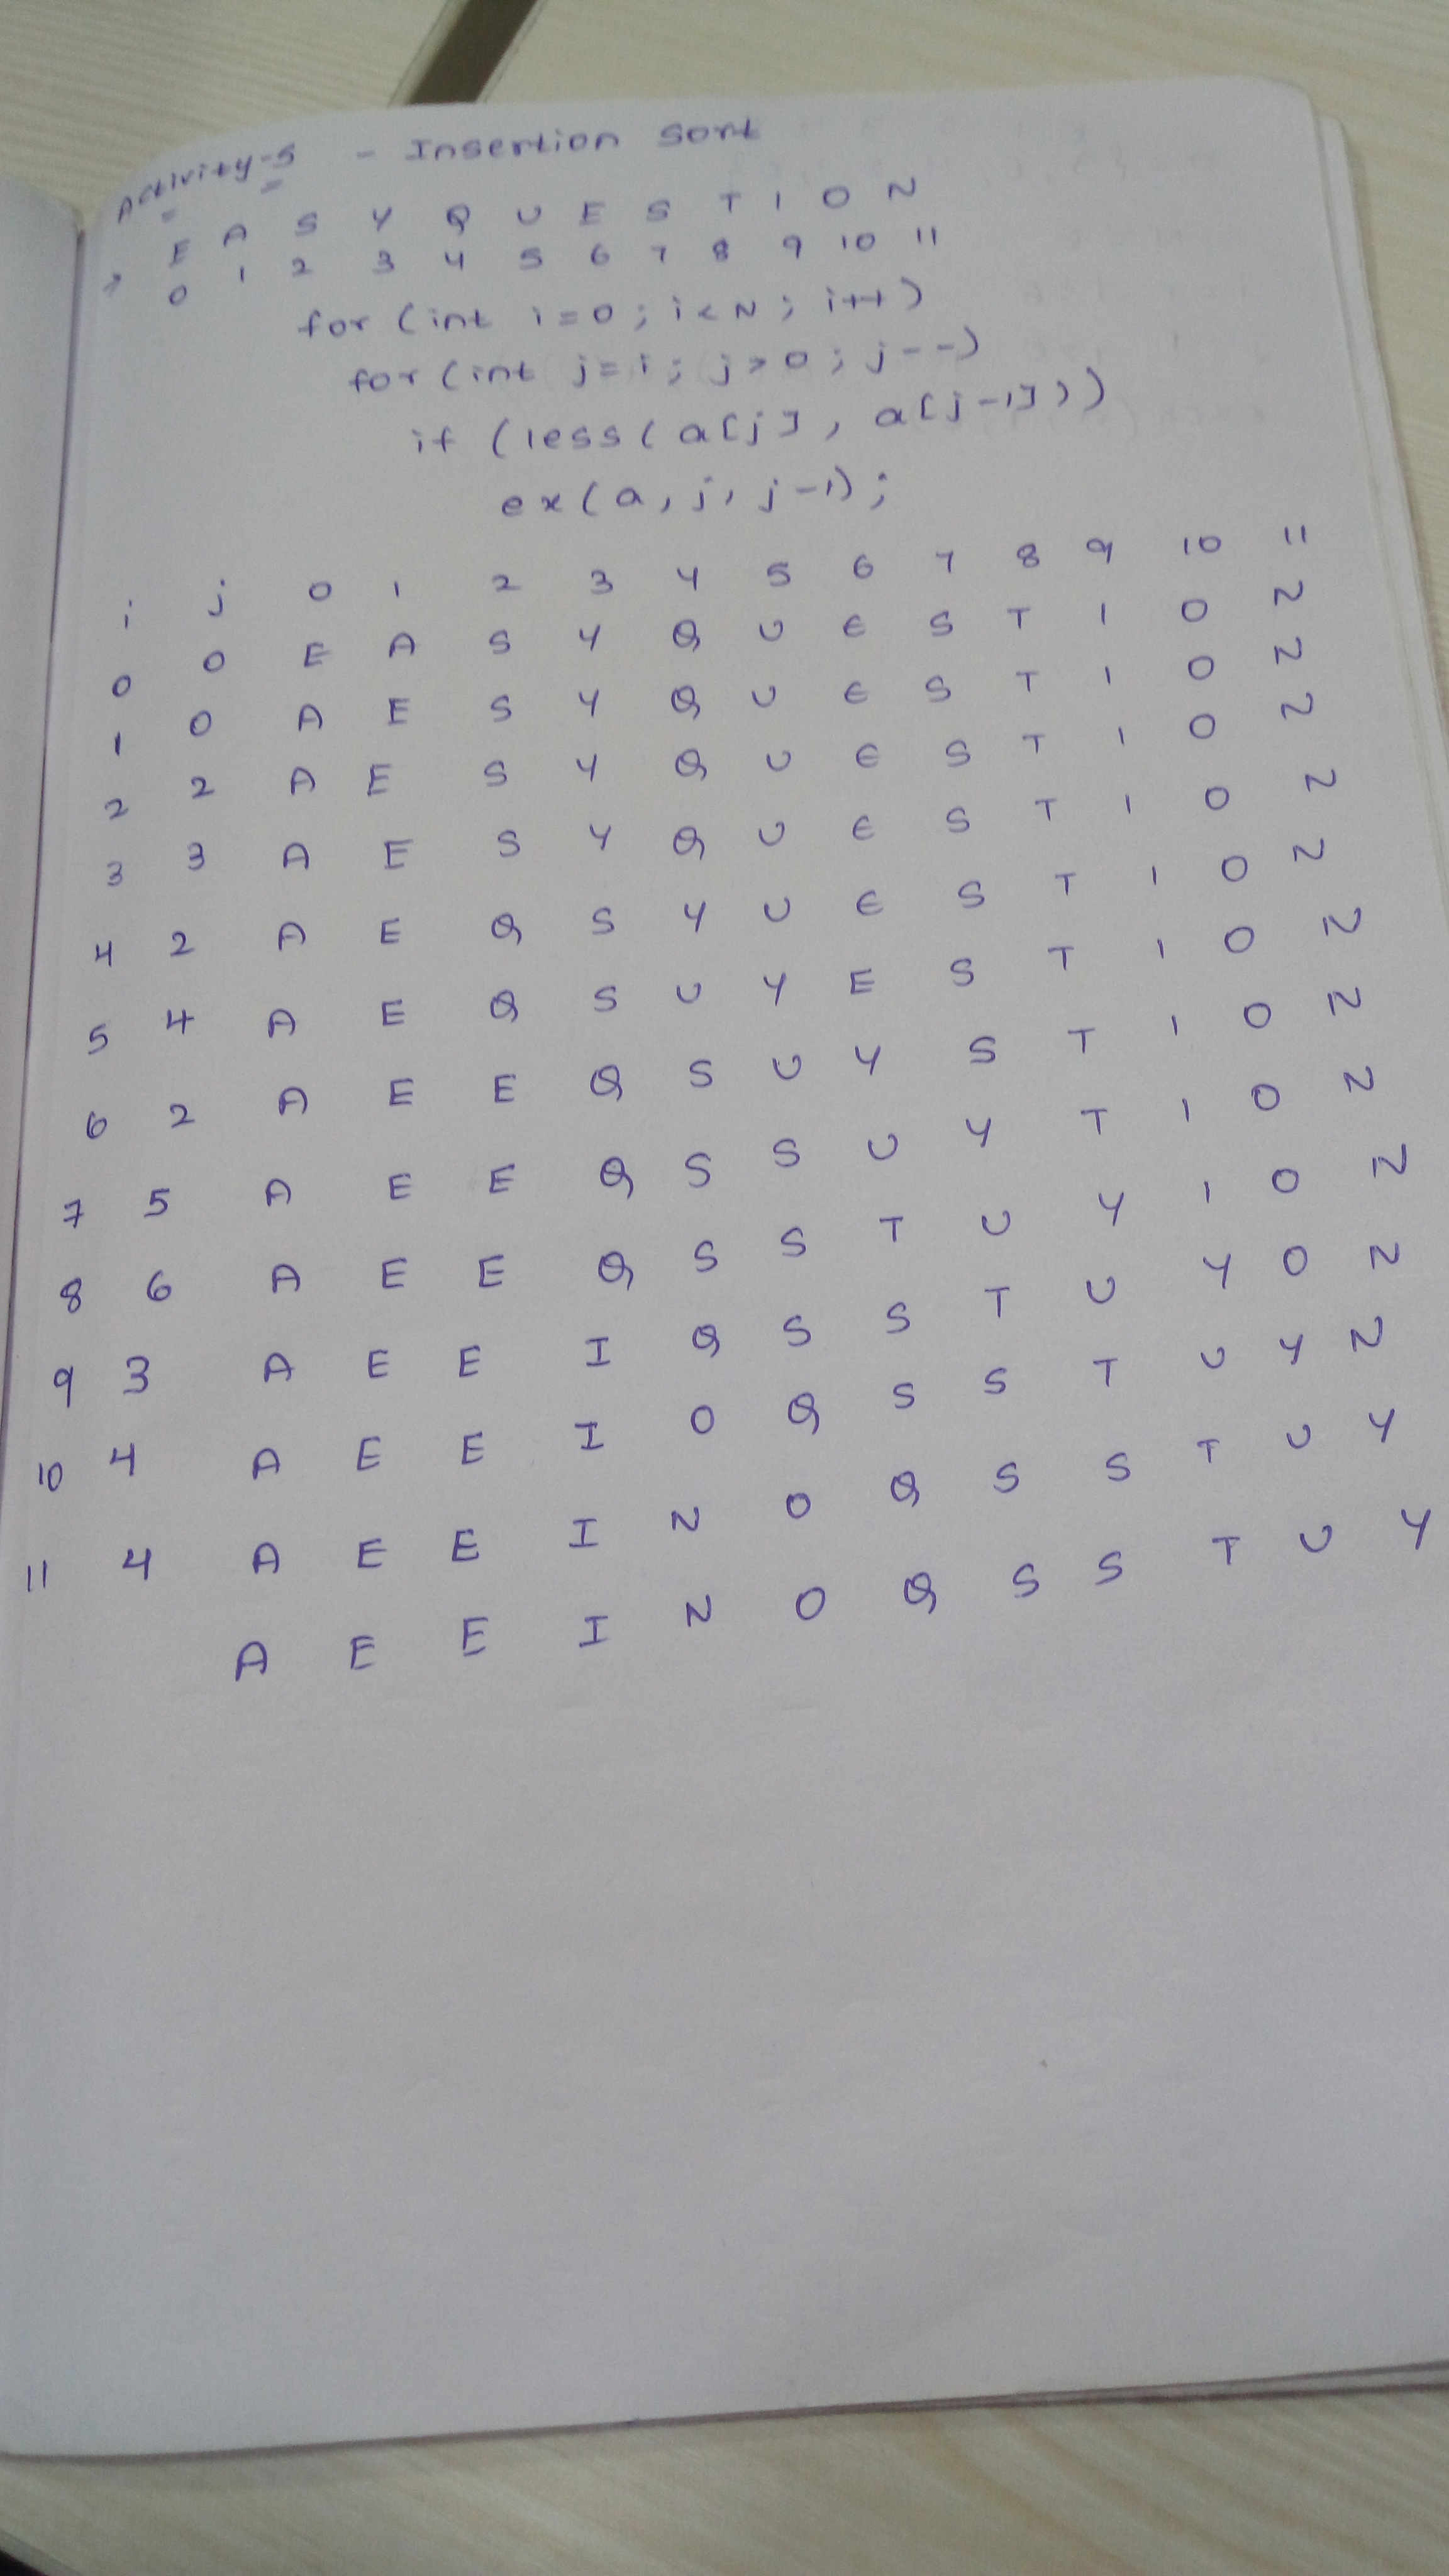 Activity-5 - Insertion Sort
E A S Y Q U E S T I O N
0 1 2 3 4 5 6 7 8 9 10 11
for (int i=0; i<N; i++)
for (int j=i; j>0; j--)
if (less(a[j], a[j-1]))
ex(a, j, j-1);
i j 0 1 2 3 4 5 6 7 8 9 10 11
0 0 E A S Y Q U E S T I O N
1 0 A E S Y Q U E S T I O N
2 2 A E S Y Q U E S T I O N
3 3 A E S Y Q U E S T I O N
4 2 A E Q S Y U E S T I O N
5 4 A E Q S U Y E S T I O N
6 2 A E E Q S U Y S T I O N
7 5 A E E Q S S U Y T I O N
8 6 A E E Q S S T U Y I O N
9 3 A E E I Q S S T U Y O N
10 4 A E E I O Q S S T U Y N
11 4 A E E I N O Q S S T U Y
A E E I N O Q S S T U Y